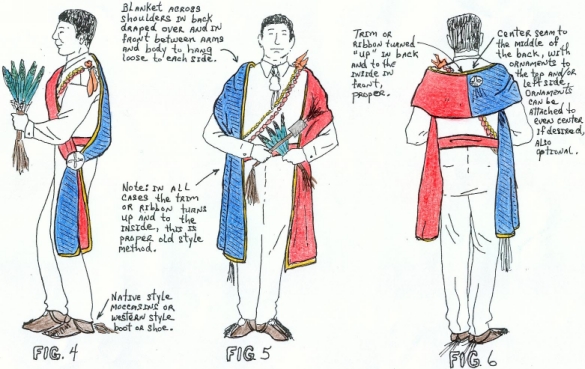 BLANKET ACROSS
SHOULDERS IN BACK
DRAPED OVER AND IN
FRONT BETWEEN ARMS
AND BODY TO HANG
LOOSE TO EACH SIDE.
TRIM OR
RIBBON TURNED
"UP" IN BACK
AND TO THE
INSIDE IN
FRONT,
PROPER.
CENTER SEAM TO
THE MIDDLE OF
THE BACK, WITH
ORNAMENTS TO
THE TOP AND/OR
LEFT SIDE,
ORNAMENTS
CAN BE
ATTACHED TO
EVEN CENTER
IF DESIRED,
ALSO
OPTIONAL.
NOTE: IN ALL
CASES THE TRIM
OR RIBBON TURNS
UP AND TO THE
INSIDE, THIS IS
PROPER OLD STYLE
METHOD.
NATIVE STYLE
MOCCASINS OR
WESTERN STYLE
BOOT OR SHOE.
FIG. 4
FIG. 5
FIG. 6